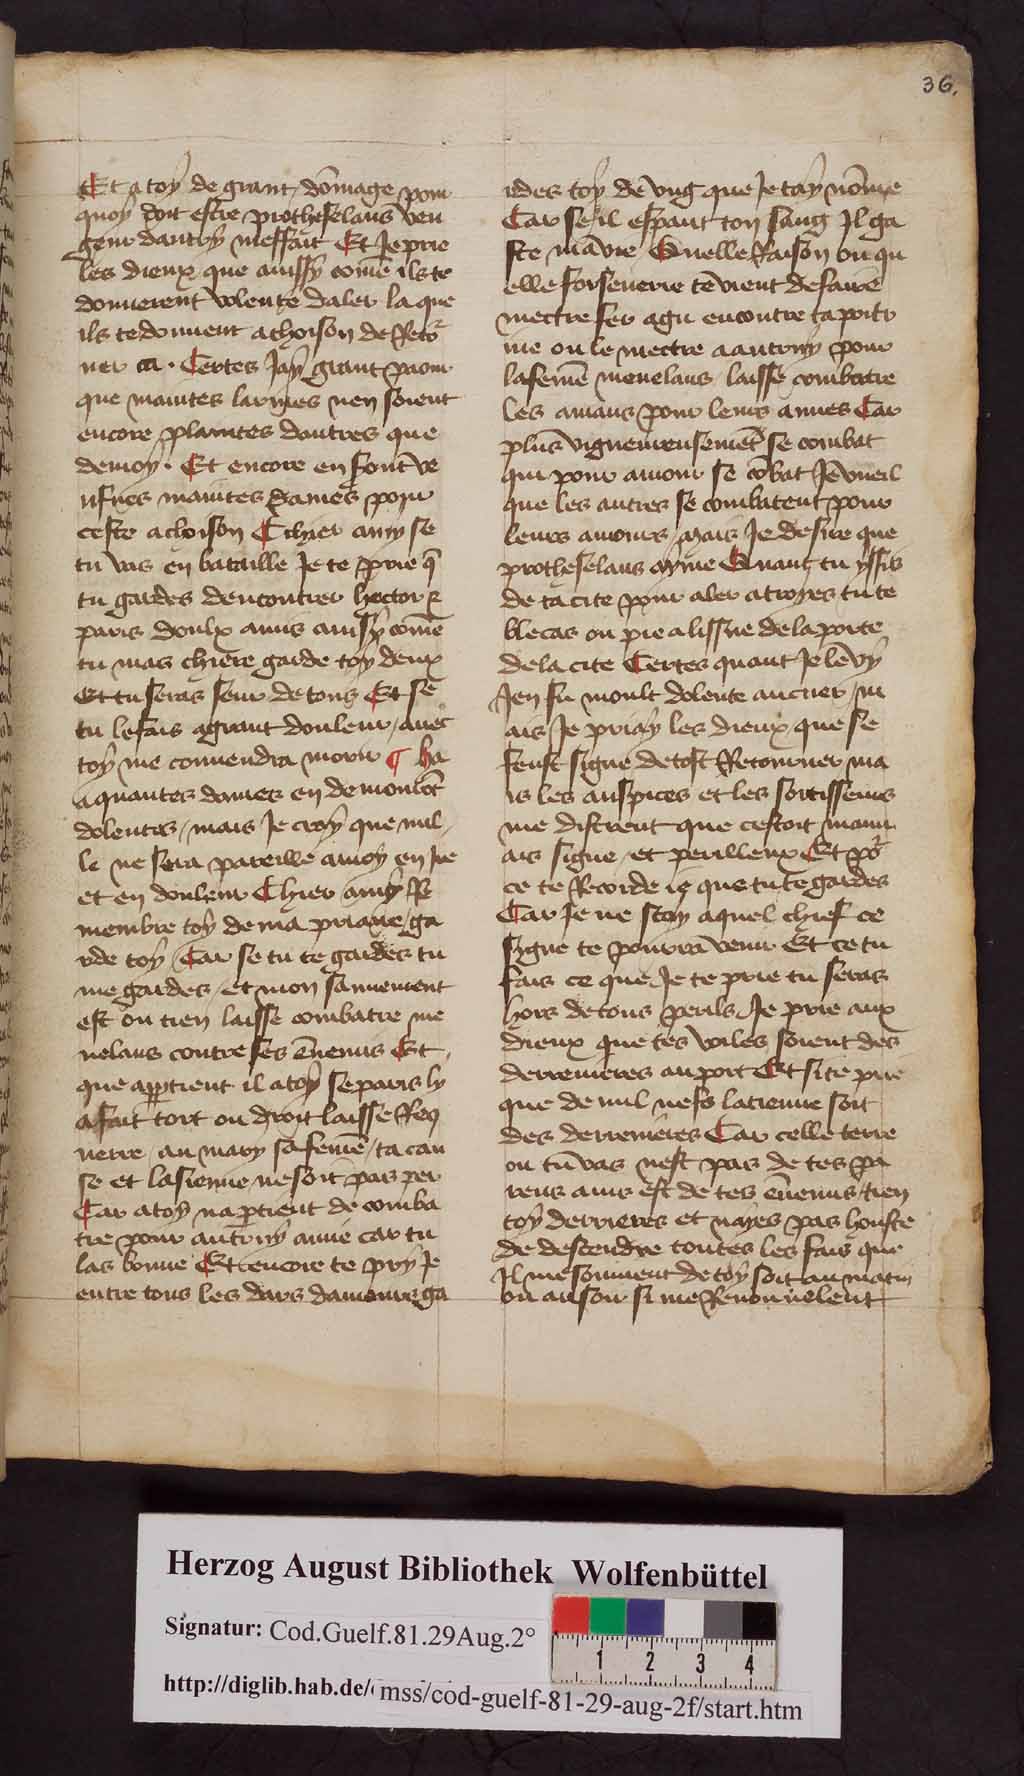 36.
Et a toy de grant dōmage pour
quoy doit estre protheselaus ven
geur dautruy meffait Et Je prie
les dieux que aussy cōme ils te
donnerent volente daler la que
ils te donnent achoison de Retor
ner ca . Certes Jay grant paour
que maintes larmes nen soient
encore plaintes dautres que
de moy . Et encore en font ve
ufues maintes dames pour
ceste achoison Chier amy se
tu vas en bataille Je te prie q̄
tu gardes dencontrer hector &
paris doulx amis aussy cōme
tu mas chiere garde toy deux
Et tu seras seur de tous Et se
tu le fais a grant douleur auec
toy me conuendra morir ¶ ha
a quantes dames en demourōt
dolentes / mais Je croy que nul
le ne sera pareille a moy en Ire
et en douleur Chier amy Re
membre toy de ma priaire ga
rde toy Car se tu te gardes tu
me gardes / et mon sauuement
est ou tien laisse combatre me
nelaus contre ses ēnemis Et
que appartient il a toy se paris ly
a fait tort ou droit laisse Req
uerre au mary sa femē / ta cau
se et la sienne ne soit pas per
Car a toy napartient de comba
tre pour autruy amie car tu
las bonne Et encore te pry Je
entre tous les dars damours ga
rdes toy de vng que Je tay nōme
Car se il espant ton sang Il ga
ste ma vie Quelle Raison ou qu
elle forsenerie te vient de faire
mectre fer agu encontre ta poitr
ine ou le mectre a autruy pour
la femē menelaus laisse combatre
les amans pour leurs amies Car
plus vigueureusement se combat
qui pour amour se cōbat Je vueil
que les autres se combatent pour
leurs amours mais Je desire que
protheselaus ayme Quant tu yssis
de ta cite pour aler a troyes tu te
blecas ou pie a lissue de la porte
de la cite Certes quant Je le vy
Jen fu moult dolente au cuer m
ais Je priay les dieux que se
feust signe de tost Retourner ma
is les auspices et les sortisseurs
me distrent que cestoit mauu
ais signe / et perilleux Et por
ce te Recorde ie que tu te gardes
Car Je ne scay a quel chief ce
sygne te pourra venir Et ce tu
fais ce que Je te prie tu seras
hors de tous perils Je prie aux
dieux que tes voiles soient des
derrenieres au port Et si te prie
que de mil nefs la tienne soit
des derrenieres Car celle terre
ou tu vas nest pas de tes pa
rens ains est de tes ēnemis tien
toy derrieres et nayes pas houste
de descendre toutes les fais que
Il me souuient de toy soit au matin
ou au soir si me Renouuelent
Herzog August Bibliothek Wolfenbüttel
Signatur: Cod.Guelf.81.29Aug.2°
http://diglib.hab.de/mss/cod-guelf-81-29-aug-2f/start.htm
1 2 3 4